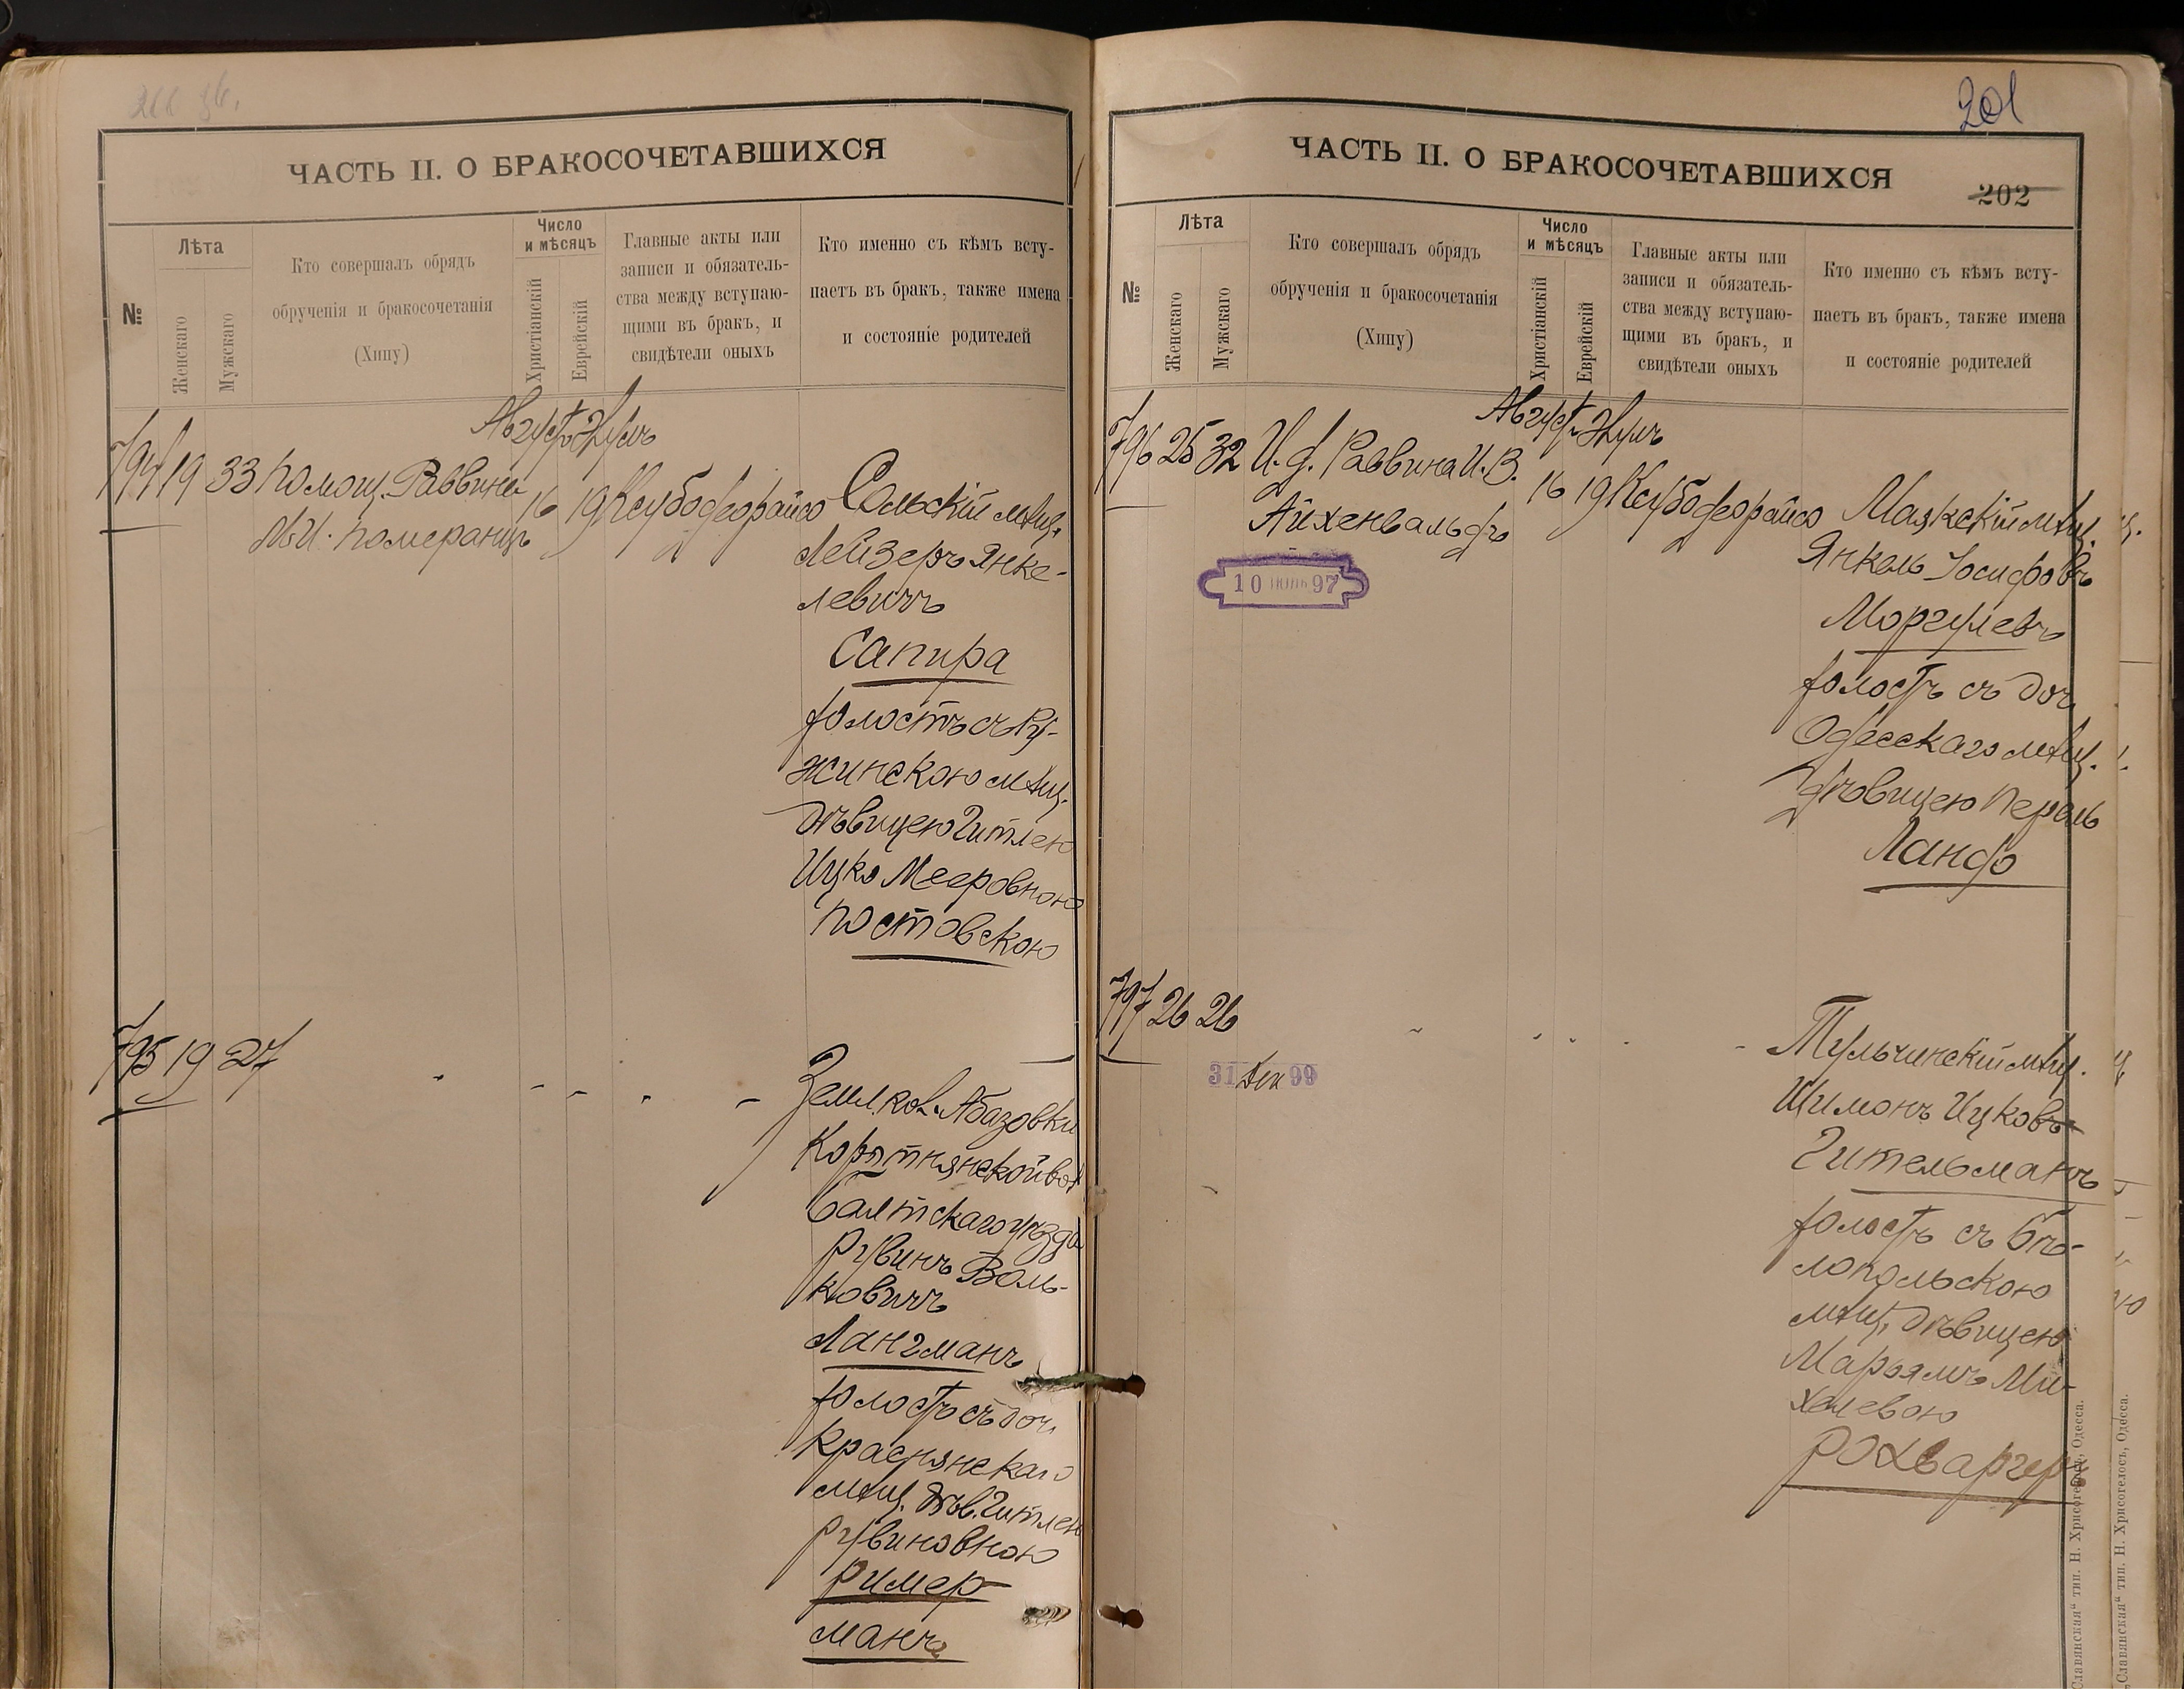 ЧАСТЬ II. О БРАКОСОЧЕТАВШИХСЯ
№
Лѣта
Женскаго
Мужскаго
Кто совершалъ обрядъ
обрученія и бракосочетанія
(Хипу)
Число
и мѣсяцъ
Христіанскій
Еврейскій
Главные акты или
записи и обязатель-
ства между вступаю-
щими въ бракъ, и
свидѣтели оныхъ
Кто именно съ кѣмъ всту-
паетъ въ бракъ, также имена
и состояніе родителей
Августъ
794 19 33 Помощ. Раввина 16 19 Ксубо деорайсо
М. И. Померанцъ
Сольскій мѣщ.
Лейзеръ Янке-
левичъ
Сапира
холостъ съ Ру-
жинскою мѣщ.
дѣвицею Гитлею
Ицко Мееровною
Постовскою
795 19 27
Земл. кол. Абазовки
Корытнянской вол.
Балтскаго уѣзда
Рувинъ Воль-
ковичъ
Лангманъ
холостъ съ доч.
Краснянскаго
мѣщ. дѣв. Гитлею
Рувиновною
Ример-
манъ
201
ЧАСТЬ II. О БРАКОСОЧЕТАВШИХСЯ
202
№
Лѣта
Женскаго
Мужскаго
Кто совершалъ обрядъ
обрученія и бракосочетанія
(Хипу)
Число
и мѣсяцъ
Христіанскій
Еврейскій
Главные акты или
записи и обязатель-
ства между вступаю-
щими въ бракъ, и
свидѣтели оныхъ
Кто именно съ кѣмъ всту-
паетъ въ бракъ, также имена
и состояніе родителей
Августъ
796 25 32 И. д. Раввина И. В. 16 19 Ксубо деорайсо
Айхенвальдъ
10 97
Маякскій мѣщ.
Янкель Іосифовъ
Моргулевъ
холостъ съ доч.
Одесскаго мѣщ.
дѣвицею Перель
Ландо
797 26 26
31 Дек 99
Тульчинскій мѣщ.
Шимонъ Ицковъ
Гительманъ
холостъ съ Бѣ-
лопольскою
мѣщ. дѣвицею
Марьямъ Ми-
хелевою
Рохваргеръ
„Славянская“ тип. Н. Хрисогелосъ, Одесса.
„Славянская“ тип. Н. Хрисогелосъ, Одесса.